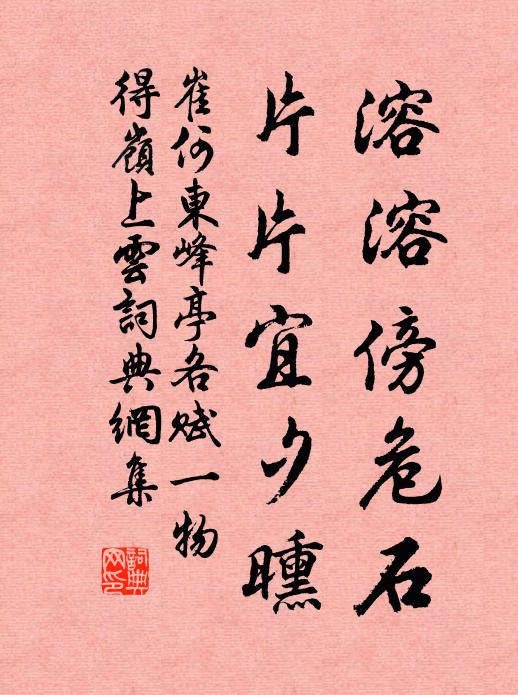 溶溶傍危石
片片宜夕曛
崔何東峰亭各賦一物
得嶺上雲詞典網集
詞典
网印